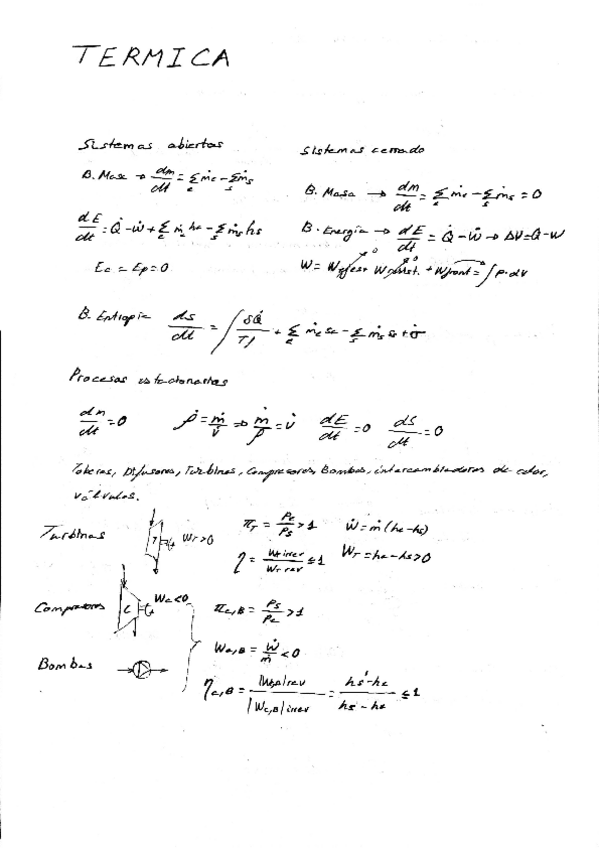 TERMICA
Sistemas abiertos
B. Masa → dm/dt = Σe ṁe - Σs ṁs
dE/dt = Q̇ - Ẇ + Σe ṁe he - Σs ṁs hs
Ec = Ep = 0
Sistemas cerrado
B. Masa → dm/dt = Σe ṁe - Σs ṁs = 0
B. Energía → dE/dt = Q̇ - Ẇ → ΔU = Q - W
+ Wfront = ∫ P · dV
B. Entropia dS/dt = ∫ δQ̇/Tf + Σe ṁe se - Σs ṁs ss + σ̇
Procesos estacionarios
dm/dt = 0 ρ̇ = ṁ/v̇ ⇒ ṁ/ρ = v̇ dE/dt = 0 dS/dt = 0
Toberas, Difusores, Turbinas, Compresores, Bombas, intercambiadores de calor,
válvulas.
Turbinas T WT > 0 πT = Pe/Ps > 1 Ẇ = ṁ(he - hs)
η = WT irrev/WT rev ≤ 1 WT = he - hs > 0
Compresores C Wc < 0 πc,B = Ps/Pe > 1
Wc,B = Ẇ/ṁ < 0
Bombas
ηc,B = |Wc,B| rev/|Wc,B| irrev = hs' - he/hs - he ≤ 1